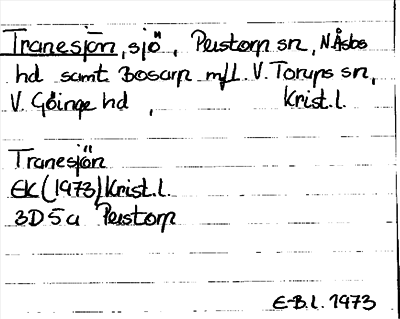 Tranesjön, sjö, Perstorp sn, N.Åsbo
hd samt Bosarp m.fl. V. Torups sn,
V. Göinge hd, Krist.l.
Tranesjön
EK (1973) Krist.l.
3D5a Perstorp
E-B.L. 1973